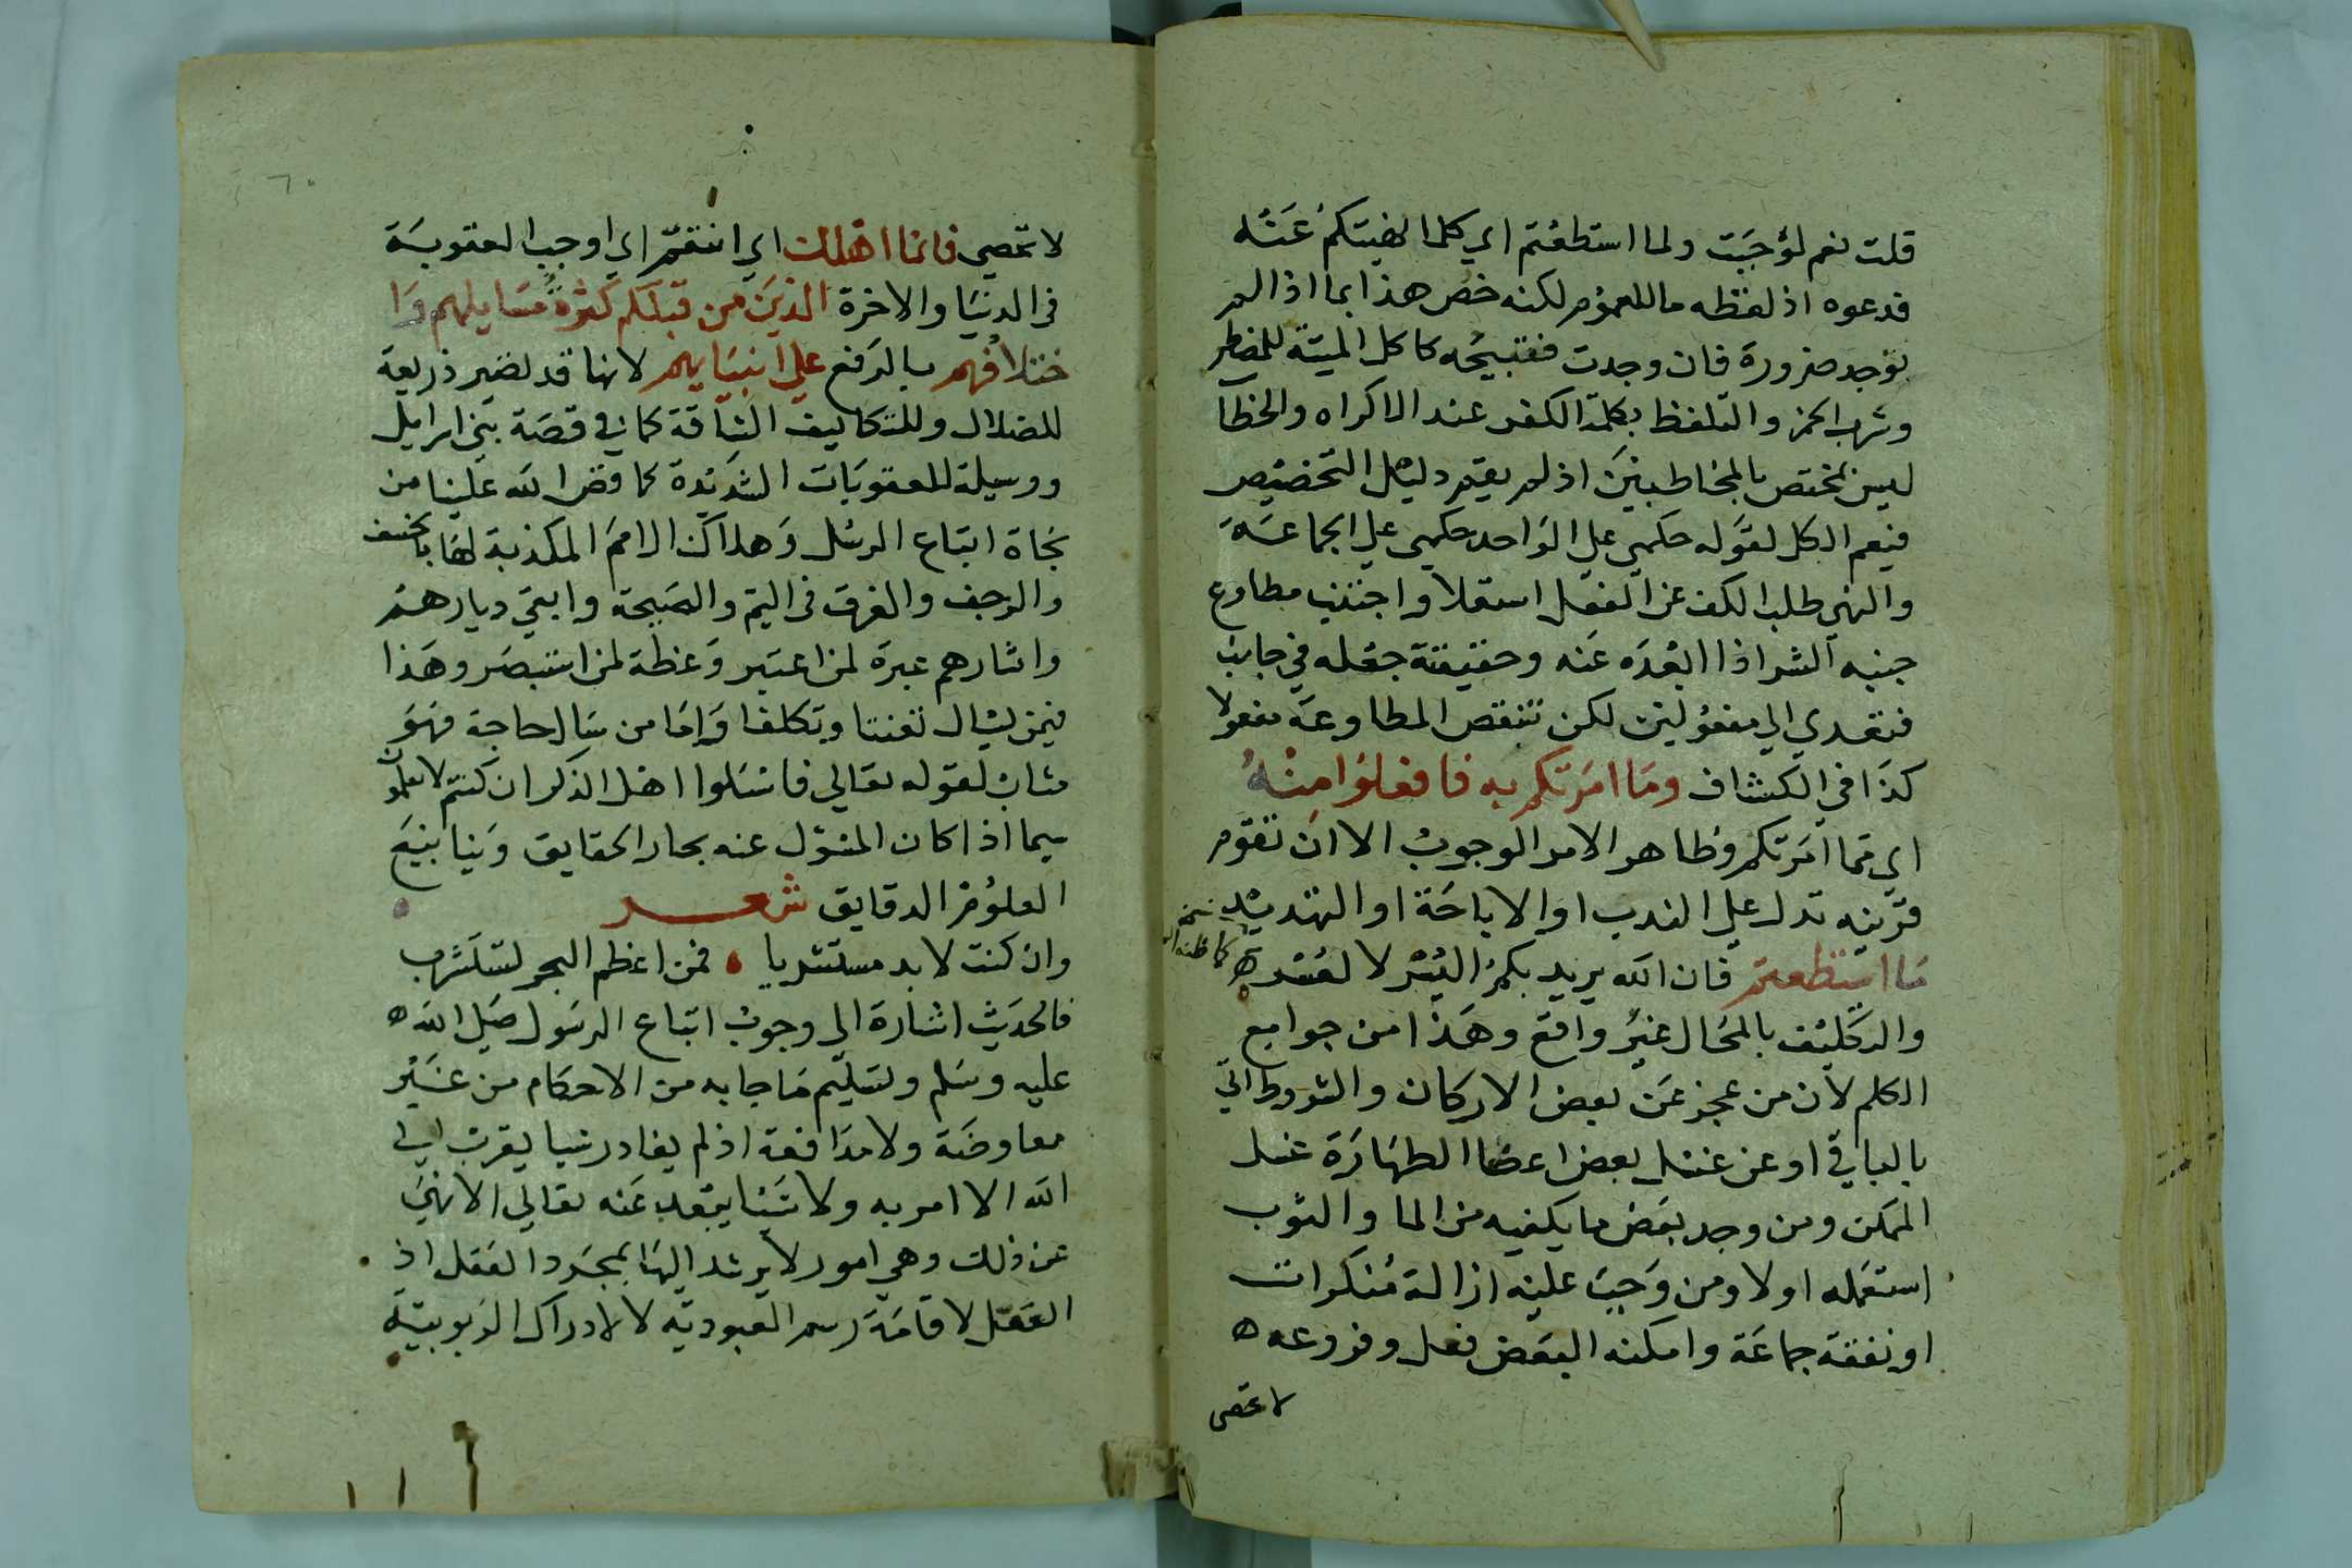 قلت نعم لوجبت ولما استطعتم اي كلما نهيتكم عنه
فدعوه اذ لفظه ما للعموم لكنه خص هذا بما اذا لم
توجد ضرورة فان وجدت فتبيحه كاكل الميتة للمضطر
وشرب الخمر والتلفظ بكلمة الكفر عند الاكراه والخطا
ليس مختص بالمخاطبين اذ لم يقم دليل التخصيص
فيعم الكل لقوله حكمي على الواحد حكمي على الجماعة
والنهي طلب الكف عن الفعل استعلا واجتنب مطاوع
جنبه الشر اذا ابعده عنه وحقيقته جعله في جانب
فتعدي الي مفعولين لكن تنقص المطاوعة مفعولا
كذا في الكشاف وما امرتكم به فافعلوا منه
اي مما امرتكم وظاهر الامر الوجوب الا ان تقوم
قرينه تدل علي الندب او الاباحة او التهديد
ما استطعتم فان الله يريد بكم اليسر لا لعسر
والتكليف بالمحال غير واقع وهذا من جوامع
الكلم لان من عجز عن بعض الاركان والشروط اتي
بالباقي او عن غسل بعض اعضا الطهارة غسل
الممكن ومن وجد بعض ما يكفيه من الما والثوب
استعمله اولا ومن وجبت عليه ازالة منكرات
او نفقة جماعة وامكنه البعض فعل وفروعه
لا تحصى
لا تحصي فانما اهلك اي انتقم اي اوجب العقوبة
في الدنيا والاخرة الذين من قبلكم كثرة مسايلهم وا
ختلافهم بالرفع علي انبيايهم لانها قد تصير ذريعة
للضلال وللتكاليف الشاقة كما في قصة بني اسرايل
ووسيلة للعقوبات الشديدة كما قص الله علينا من
نجاة اتباع الرسل وهلاك الامم المكذبة لها بالخسف
والرجف والغرق في اليم والصيحة وابقي ديارهم
واثارهم عبرة لمن اعتبر وعظة لمن استبصر وهذا
فيمن يسال تعنتا وتكلفا واما من سال لحاجة فهو
مثاب لقوله تعالي فاسئلوا اهل الذكر ان كنتم لا تعلمون
سيما اذا كان المسؤل عنه بحار الحقايق وينابيع
العلوم الدقايق شعر
وان كنت لا بد مستشربا فمن اعظم البحر لتستشرب
فالحديث اشارة الي وجوب اتباع الرسول صلي الله
عليه وسلم وتسليم ما جا به من الاحكام من غير
معاوضة ولا مدافعة اذ لم يغادر شيا يقرب الي
الله الا امر به ولا شيئا يبعد عنه تعالي الا نهي
عن ذلك وهي امور لا يرشد اليها بمجرد العقل اذ
العقل لاقامة رسم العبوديه لا لادراك الربوبية